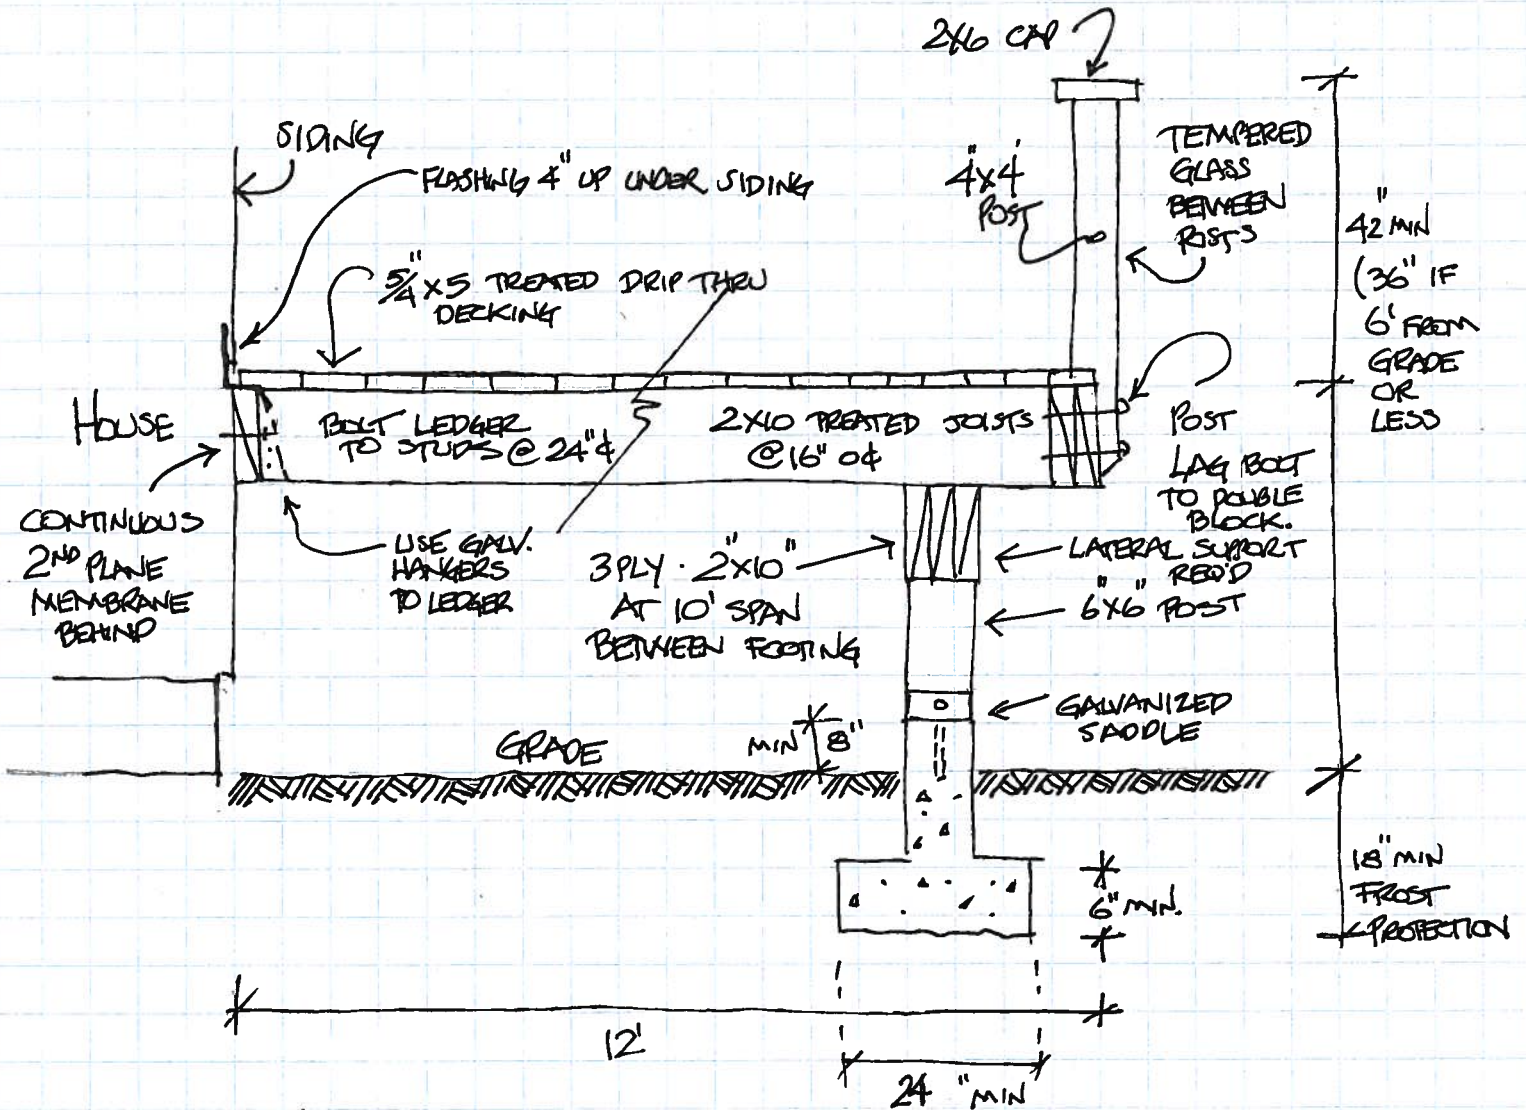 2X6 CAP
SIDING
FLASHING 4" UP UNDER SIDING
4"x4"
POST
TEMPERED
GLASS
BETWEEN
POSTS
42" MIN
(36" IF
6' FROM
GRADE
OR
LESS
5/4" x 5 TREATED DRIP THRU
DECKING
HOUSE
BOLT LEDGER
TO STUDS @ 24" ¢
2X10 TREATED JOISTS
@ 16" o¢
POST
LAG BOLT
TO DOUBLE
BLOCK.
CONTINUOUS
2ND PLANE
MEMBRANE
BEHIND
USE GALV.
HANGERS
TO LEDGER
3 PLY · 2"x10"
AT 10' SPAN
BETWEEN FOOTING
LATERAL SUPPORT
REQ'D
6"x6" POST
GALVANIZED
SADDLE
GRADE
MIN 8"
18" MIN
FROST
PROTECTION
6" MIN.
12'
24" MIN